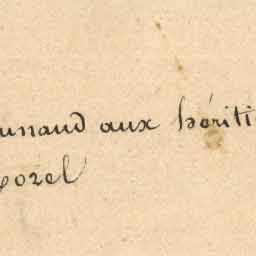 unaud aux hériti
orel